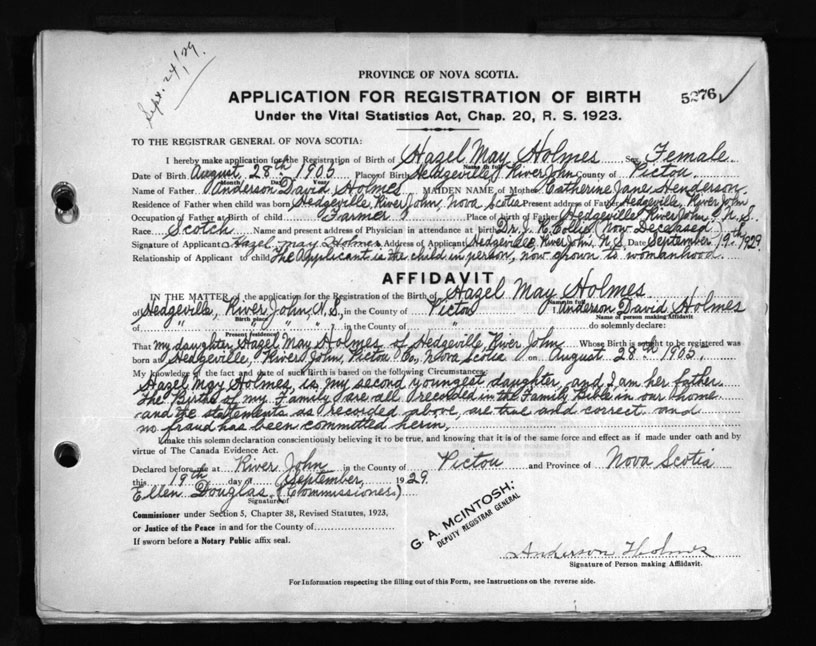 Sept. 24/29.
PROVINCE OF NOVA SCOTIA.
APPLICATION FOR REGISTRATION OF BIRTH
5276
Under the Vital Statistics Act, Chap. 20, R. S. 1923.
TO THE REGISTRAR GENERAL OF NOVA SCOTIA:
I hereby make application for the Registration of Birth of Hazel May Holmes Sex Female.
Name in full
Date of Birth August, 28th 1905 Place of Birth Hedgeville, River John County of Pictou.
Month Day Year
Name of Father Anderson David Holmes MAIDEN NAME of Mother Catherine Jane Henderson.
Residence of Father when child was born Hedgeville, River John, Nova Scotia Present address of Father Hedgeville, River John,
Occupation of Father at Birth of child Farmer Place of birth of Father Hedgeville River John, N.S.
Race Scotch Name and present address of Physician in attendance at birth Dr. J. K. Collie (now Deceased)
Signature of Applicant Hazel May Holmes Address of Applicant Hedgeville, River John, N.S. Date September 19th, 1929.
Relationship of Applicant to child The Applicant is the child in person, now grown to womanhood.
AFFIDAVIT
IN THE MATTER of the application for the Registration of the Birth of Hazel May Holmes
Name in full
of Hedgeville, River John, N.S. in the County of Pictou I Anderson David Holmes
Birth place Name of person making Affidavit
of " " " " in the County of " do solemnly declare:
Present residence
That my daughter, Hazel May Holmes of Hedgeville, River John Whose Birth is sought to be registered was
born at Hedgeville, River John, Pictou Co, Nova Scotia on August 28th 1905.
My knowledge of the fact and date of such Birth is based on the following Circumstances
Hazel May Holmes, is my second youngest daughter, and I am her father.
The Births of my Family are all recorded in the Family Bible in our home
and the statements as recorded above, are true and correct and
no fraud has been committed herin,
I make this solemn declaration conscientiously believing it to be true, and knowing that it is of the same force and effect as if made under oath and by
virtue of The Canada Evidence Act.
Declared before me at River John in the County of Pictou and Province of Nova Scotia
this 19th day of September, 1929.
Ellen Douglas, (Commissioners)
Signature of
Commissioner under Section 5, Chapter 38, Revised Statutes, 1923,
or Justice of the Peace in and for the County of
If sworn before a Notary Public affix seal.
G. A. MCINTOSH;
DEPUTY REGISTRAR GENERAL
Anderson Holmes
Signature of Person making Affidavit.
For Information respecting the filling out of this Form, see Instructions on the reverse side.